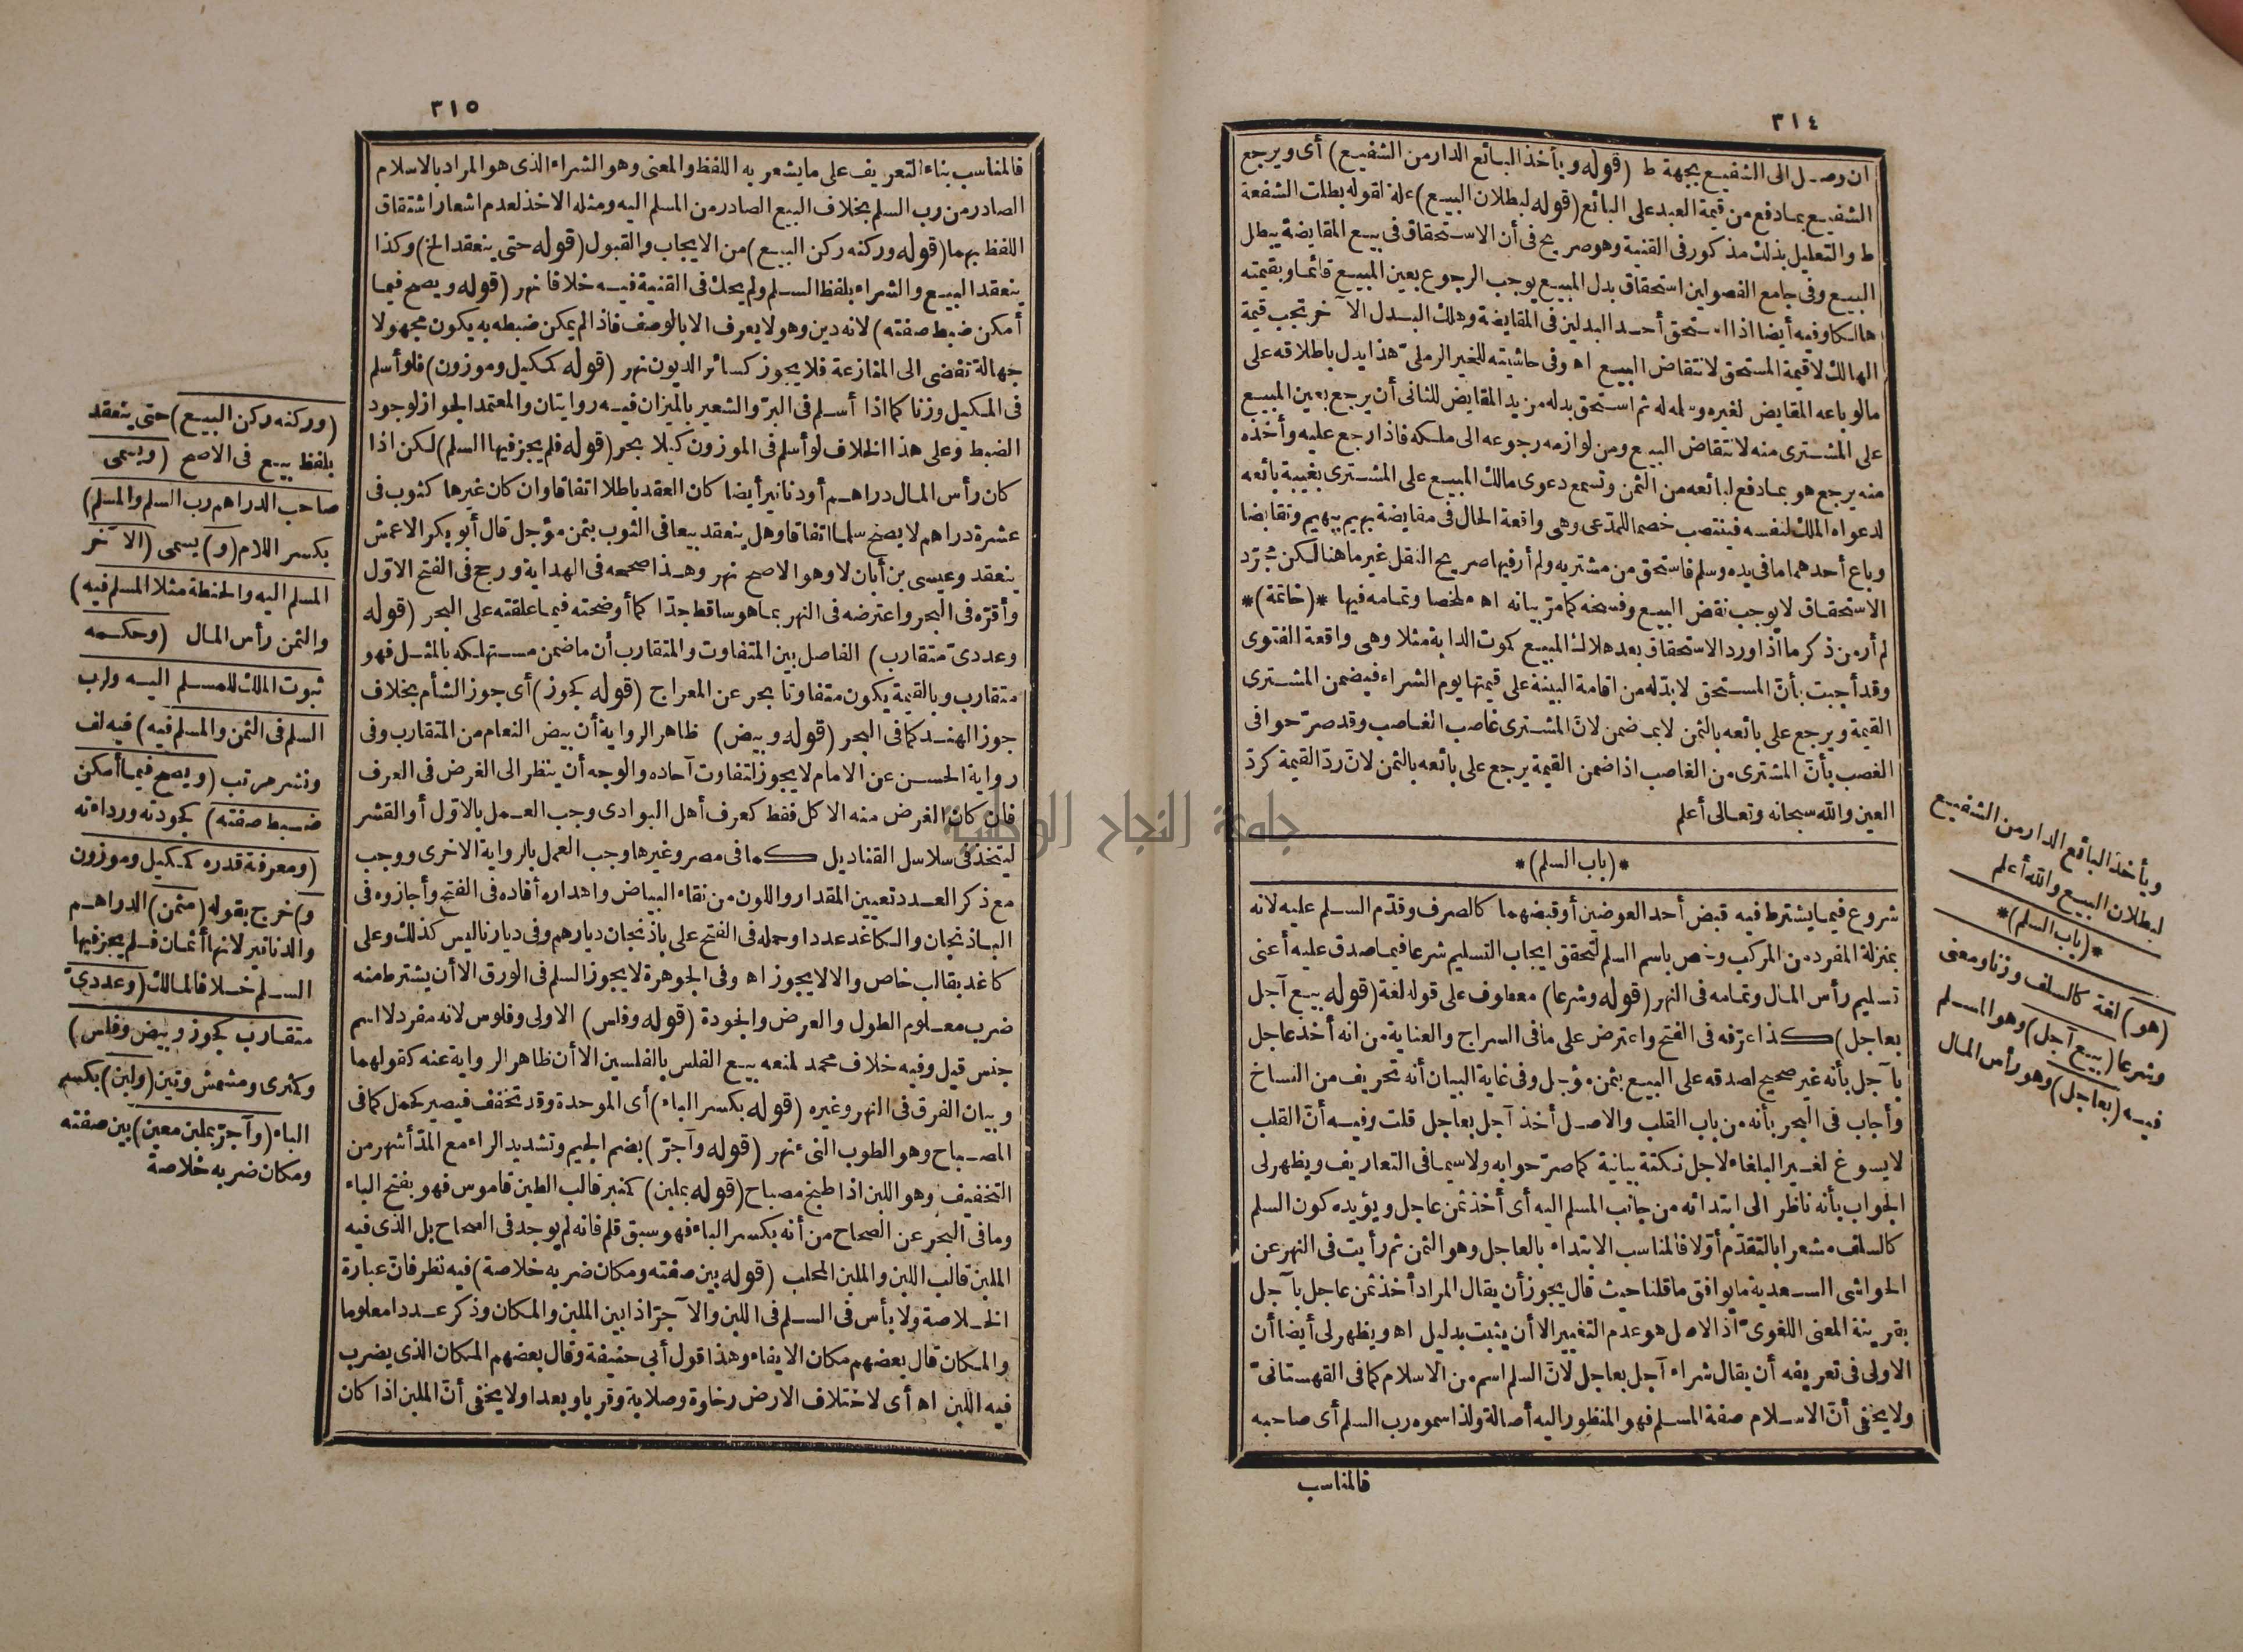 ٣١٤
ان وصل الى الشفيع بجهة ط (قوله ويأخذ البائع الدار من الشفيع) أى ويرجع
الشفيع بما دفع من قيمة العبد على البائع (قوله لبطلان البيع) علة لقوله بطلت الشفعة
ط والتعليل بذلك مذكور فى القنية وهو صريح فى أن الاستحقاق فى بيع المقايضة يبطل
البيع وفى جامع الفصولين استحقاق بدل المبيع يوجب الرجوع بعين المبيع قائما وبقيمته
هالكا وفيه أيضا اذا استحق أحد البدلين فى المقايضة وهلك البدل الآخر تجب قيمة
الهالك لا قيمة المستحق لانتقاض البيع اه وفى حاشيته للخير الرملىّ هذا يدل باطلاقه على
مالو باعه المقايض لغيره وسلمه له ثم استحق بدله من يد المقايض للثانى أن يرجع بعين المبيع
على المشترى منه لانتقاض البيع ومن لوازمه رجوعه الى ملكه فاذا رجع عليه وأخذه
منه يرجع هو بما دفع لبائعه من الثمن وتسمع دعوى مالك المبيع على المشترى بغيبة بائعه
لدعواه الملك لنفسه فينتصب خصما للمدّعى وهى واقعة الحال فى مقايضة بهيم ببهيم وتقابضا
وباع أحدهما ما فى يده وسلم فاستحق من مشتريه ولم أر فيها صريح النقل غير ما هنا لكن مجرّد
الاستحقاق لا يوجب نقض البيع وفسخه كما مرّ بيانه اه ملخصا وتمامه فيها *(خاتمة)*
لم أر من ذكر ما اذا ورد الاستحقاق بعد هلاك المبيع كموت الدابة مثلا وهى واقعة الفتوى
وقد أجبت بأنّ المستحق لا بدّ له من اقامة البينة على قيمتها يوم الشراء فيضمن المشترى
القيمة ويرجع على بائعه بالثمن لا بما ضمن لانّ المشترى غاصب الغاصب وقد صرّحوا فى
الغصب بأنّ المشترى من الغاصب اذا ضمن القيمة يرجع على بائعه بالثمن لانّ ردّ القيمة كردّ
العين والله سبحانه وتعالى أعلم
*(باب السلم)*
شروع فيما يشترط فيه قبض أحد العوضين أو قبضهما كالصرف وقدّم السلم عليه لانه
بمنزلة المفرد من المركب وخص باسم السلم لتحقق ايجاب التسليم شرعا فيما صدق عليه أعنى
تسليم رأس المال وتمامه فى النهر (قوله وشرعا) معطوف على قوله لغة (قوله بيع آجل
بعاجل) كذا عرّفه فى الفتح واعترض على ما فى السراج والعناية من انه أخذ عاجل
بآجل بأنه غير صحيح لصدقه على البيع بثمن مؤجل وفى غاية البيان أنه تحريف من النساخ
وأجاب فى البحر بأنه من باب القلب والاصل أخذ آجل بعاجل قلت وفيه أنّ القلب
لا يسوغ لغير البلغاء لاجل نكتة بيانية كما صرّحوا به ولاسيما فى التعاريف ويظهر لى
الجواب بأنه ناظر الى ابتدائه من جانب المسلم اليه أى أخذ ثمن عاجل ويؤيده كون السلم
كالسلف مشعرا بالتقدّم أوّلا فالمناسب الابتداء بالعاجل وهو الثمن ثم رأيت فى النهر عن
الحواشى السعدية ما يوافق ما قلنا حيث قال يجوز أن يقال المراد أخذ ثمن عاجل بآجل
بقرينة المعنى اللغوىّ اذ الاصل هو عدم التغيير الا أن يثبت بدليل اه ويظهر لى أيضا أن
الاولى فى تعريفه أن يقال شراء آجل بعاجل لانّ السلم اسم من الاسلام كما فى القهستانىّ
ولا يخفى أنّ الاسلام صفة المسلم فهو المنظور اليه أصالة ولذا سموه رب السلم أى صاحبه
فالمناسب
ويأخذ البائع الدار من الشفيع
لبطلان البيع والله أعلم
*(باب السلم)*
(هو) لغة كالسلف وزنا ومعنى
وشرعا (بيع آجل) وهو المسلم
فيه (بعاجل) وهو رأس المال
٣١٥
فالمناسب بناء التعريف على ما يشعر به اللفظ والمعنى وهو الشراء الذى هو المراد بالاسلام
الصادر من رب السلم بخلاف البيع الصادر من المسلم اليه ومثله الاخذ لعدم اشعار اشتقاق
اللفظ بهما (قوله وركنه ركن البيع) من الايجاب والقبول (قوله حتى ينعقد الخ) وكذا
ينعقد البيع والشراء بلفظ السلم ولم يحك فى القنية فيه خلافا نهر (قوله ويصح فيما
أمكن ضبط صفته) لانه دين وهو لا يعرف الا بالوصف فاذا لم يمكن ضبطه به يكون مجهولا
جهالة تفضى الى المنازعة فلا يجوز كسائر الديون نهر (قوله كمكيل وموزون) فلو أسلم
فى المكيل وزنا كما اذا أسلم فى البرّ والشعير بالميزان فيه روايتان والمعتمد الجواز لوجود
الضبط وعلى هذا الخلاف لو أسلم فى الموزون كيلا بحر (قوله فلم يجز فيها السلم) لكن اذا
كان رأس المال دراهم أو دنانير أيضا كان العقد باطلا اتفاقا وان كان غيرها كثوب فى
عشرة دراهم لا يصح سلما اتفاقا وهل ينعقد بيعا فى الثوب بثمن مؤجل قال أبو بكر الاعمش
ينعقد وعيسى بن أبان لا وهو الاصح نهر وهذا صححه فى الهداية ورجح فى الفتح الاوّل
وأقرّه فى البحر واعترضه فى النهر بما هو ساقط جدّا كما أوضحته فيما علقته على البحر (قوله
وعددىّ متقارب) الفاصل بين المتفاوت والمتقارب أن ما ضمن مستهلكه بالمثل فهو
متقارب وبالقيمة يكون متفاوتا بحر عن المعراج (قوله كجوز) أى جوز الشأم بخلاف
جوز الهند كما فى البحر (قوله وبيض) ظاهر الرواية أن بيض النعام من المتقارب وفى
رواية الحسن عن الامام لا يجوز لتفاوت آحاده والوجه أن ينظر الى الغرض فى العرف
فان كان الغرض منه الاكل فقط كعرف أهل البوادى وجب العمل بالاوّل أو القشر
ليتخذ فى سلاسل القناديل كما فى مصر وغيرها وجب العمل بالرواية الاخرى ووجب
مع ذكر العدد تعيين المقدار واللون من نقاء البياض واهداره أفاده فى الفتح وأجازوه فى
الباذنجان والكاغد عددا وحمله فى الفتح على باذنجان ديارهم وفى ديارنا ليس كذلك وعلى
كاغد بقالب خاص والا لا يجوز اه وفى الجوهرة لا يجوز السلم فى الورق الا أن يشترط منه
ضرب معلوم الطول والعرض والجودة (قوله وفلس) الاولى وفلوس لانه مفرد لا اسم
جنس قيل وفيه خلاف محمد لمنعه بيع الفلس بالفلسين الا أن ظاهر الرواية عنه كقولهما
وبيان الفرق فى النهر وغيره (قوله بكسر الباء) أى الموحدة وقد تخفف فيصير كحمل كما فى
المصباح وهو الطوب النىء نهر (قوله وآجرّ) بضم الجيم وتشديد الراء مع المدّ أشهر من
التخفيف وهو اللبن اذا طبخ مصباح (قوله بملبن) كمنبر قالب الطين قاموس فهو بفتح الباء
وما فى البحر عن الصحاح من أنه بكسر الباء فهو سبق قلم فانه لم يوجد فى الصحاح بل الذى فيه
الملبن قالب اللبن والملبن المحلب (قوله بين صفته ومكان ضربه خلاصة) فيه نظر فانّ عبارة
الخلاصة ولا بأس فى السلم فى اللبن والآجرّ اذا بين الملبن والمكان وذكر عددا معلوما
والمكان قال بعضهم مكان الايفاء وهذا قول أبى حنيفة وقال بعضهم المكان الذى يضرب
فيه اللبن اه أى لاختلاف الارض رخاوة وصلابة وقربا وبعدا ولا يخفى أنّ الملبن اذا كان
(وركنه ركن البيع) حتى ينعقد
بلفظ بيع فى الاصح (ويسمى
صاحب الدراهم رب السلم والمسلم)
بكسر اللام (و) يسمى (الآخر
المسلم اليه والحنطة مثلا المسلم فيه)
والثمن رأس المال (وحكمه
ثبوت الملك للمسلم اليه ولرب
السلم فى الثمن والمسلم فيه) فيه لف
ونشر مرتب (ويصح فيما أمكن
ضبط صفته) كجودته ورداءته
(ومعرفة قدره كمكيل وموزون
و) خرج بقوله (مثمن) الدراهم
والدنانير لانها أثمان فلم يجز فيها
السلم خلافا لمالك (وعددىّ
متقارب كجوز وبيض وفلس)
وكمثرى ومشمش وتين (ولبن) بكسر
الباء (وآجرّ بملبن معين) بين صفته
ومكان ضربه خلاصة
جامعة النجاح الوطنية